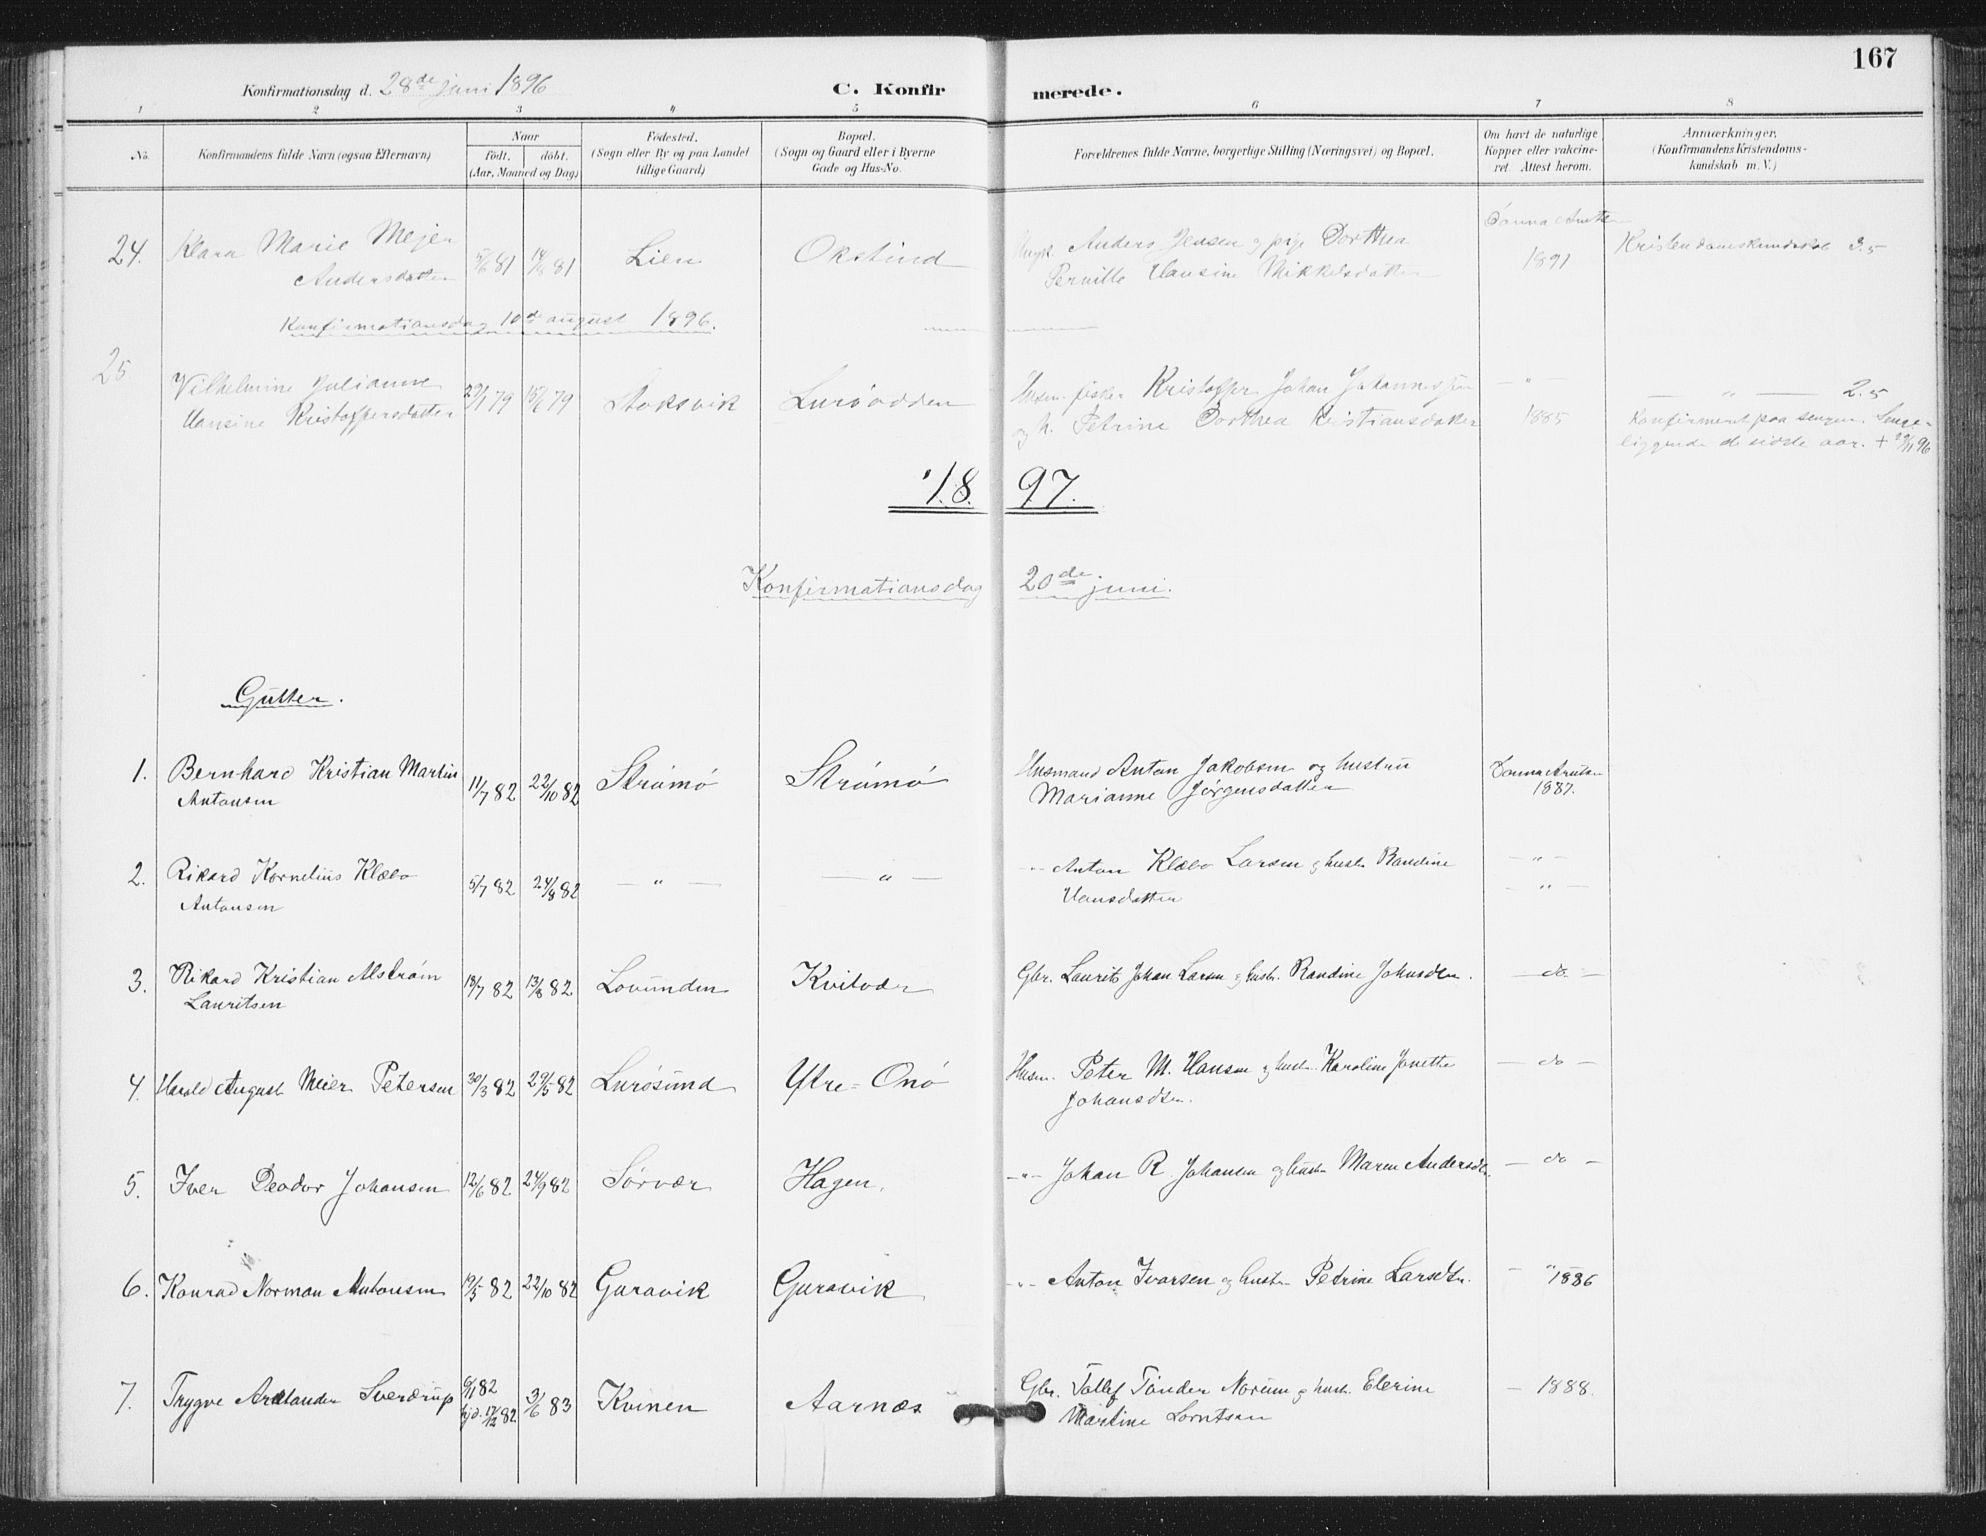 167
Konfirmationsdag d. 28de juni 1896
C. Konfirmerede.
1 2 3 4 5 6 7 8
No.
Konfirmandens fulde Navn (ogsaa Efternavn)
Naar
født. døbt.
(Aar, Maaned og Dag)
Fødested.
(Sogn eller By og paa Landet
tillige Gaard)
Bopæl.
(Sogn og Gaard eller i Byerne
Gade og Hus-No.
Forældrenes fulde Navne, borgerlige Stilling (Næringsvei) og Bopæl.
Om havt de naturlige
Kopper eller vakcine-
ret. Attest herom.
Anmærkninger.
(Konfirmandens Kristendoms-
kundskab m. V.)
24. Klara Marie Mejer
Andersdatter
81 81 Lien Okstind
Ungk. Anders Jensen og pige Dorthea
Pernille Hansine Mikkelsdatter
1891
Kristendomskundskab 3.5
Konfirmationsdag 10de august 1896.
25. Vilhelmine Julianne
Hansine Kristoffersdatter
29/1 79 15/6 79 Stoksvik Lurøodden
Husm. fisker Kristoffer Johan Johannessen
og h. Petrine Dorthea Kristiansdatter
— " —
1885
— " — 2.5
Konfirmeret paa sengen. Senge-
liggende de sidste aar. + 96
1897.
Konfirmationsdag 20de juni.
Gutter.
1. Bernhard Kristian Martin
Antonsen
11/7 82 22/10 82 Strømø Strømø
Husmand Anton Jakobsen og hustru
Marianne Jørgensdatter
1887.
2. Rikard Kornelius Klæbo
Antonsen
5/7 82 24/9 82 — " — — " —
-"- Anton Klæbo Larsen og hustr. Randine
Hansdatter
— " —
— " —
3. Rikard Kristian Alstrøm
Lauritsen
82 13/8 82 Lovunden Kvitvær
Gbr. Laurits Johan Larsen og hustr. Randine Johnsdtr.
— do —
4. Harald August Meier Petersen
30/3 82 29/5 82 Lurøsund Ytre-Onø
Husm. Peter M. Hansen og hustr. Karoline Jonette
Johansdtr.
— do —
5. Iver Deodor Johansen
12/6 82 24/9 82 Sørvær Hagen.
-"- Johan R. Johansen og hustr. Maren Andersdtr.
— do —
6. Konrad Norman Antonsen
19/5 82 22/10 82 Garavik Garavik
-"- Anton Ivarsen og hustr. Petrine Larsdtr.
— " 1886
7. Trygve Arelander Sverdrup
6/11 82
hjd. 17/12 82
3/6 83 Kvinen Aarnæs
Gbr. Tollef Tønder Norum og hustr. Elerine
Martine Lorntsen
— 1888.